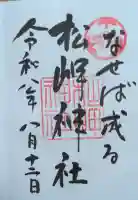 なせば成る
松岬神社
令和八年八月十二日